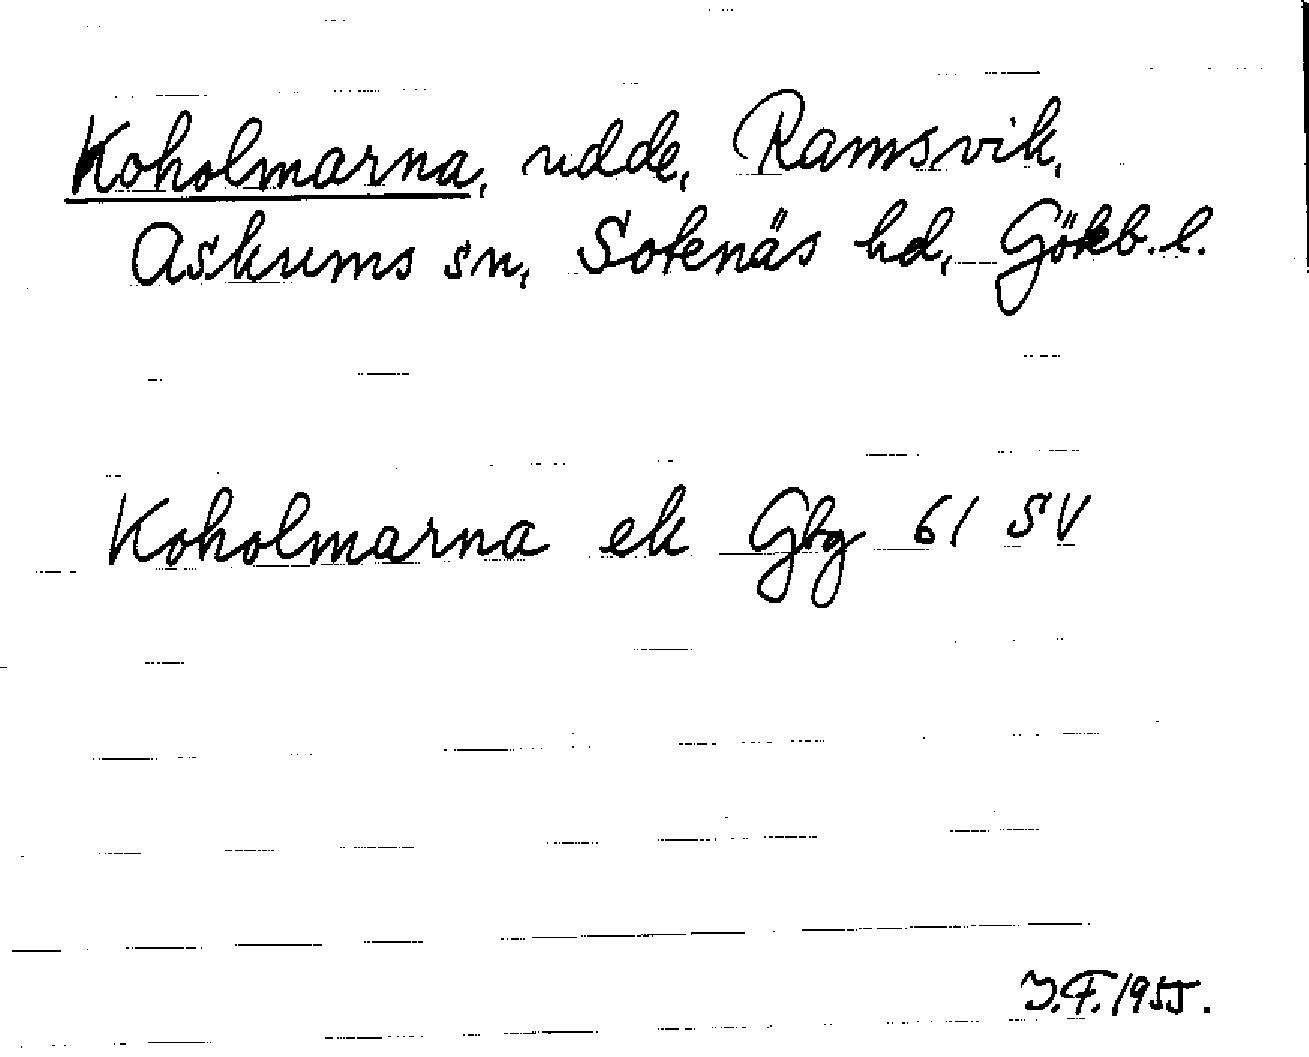 Koholmarna, udde, Ramsvik,
Askums sn, Sotenäs hd, Göteb. l.
Koholmarna ek Gbg 61 SV
J.F. 1955.